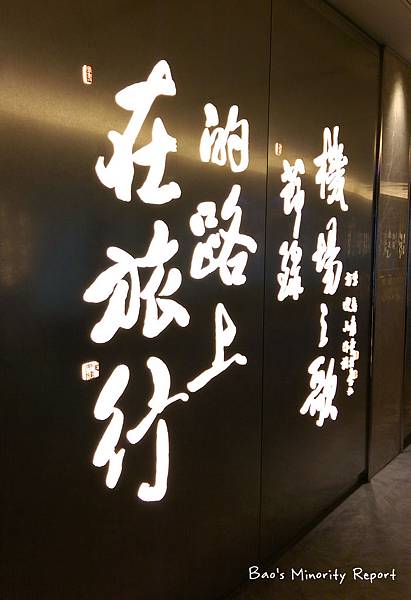 在旅行
的路上
節錄
機場之歌
Bao's Minority Report